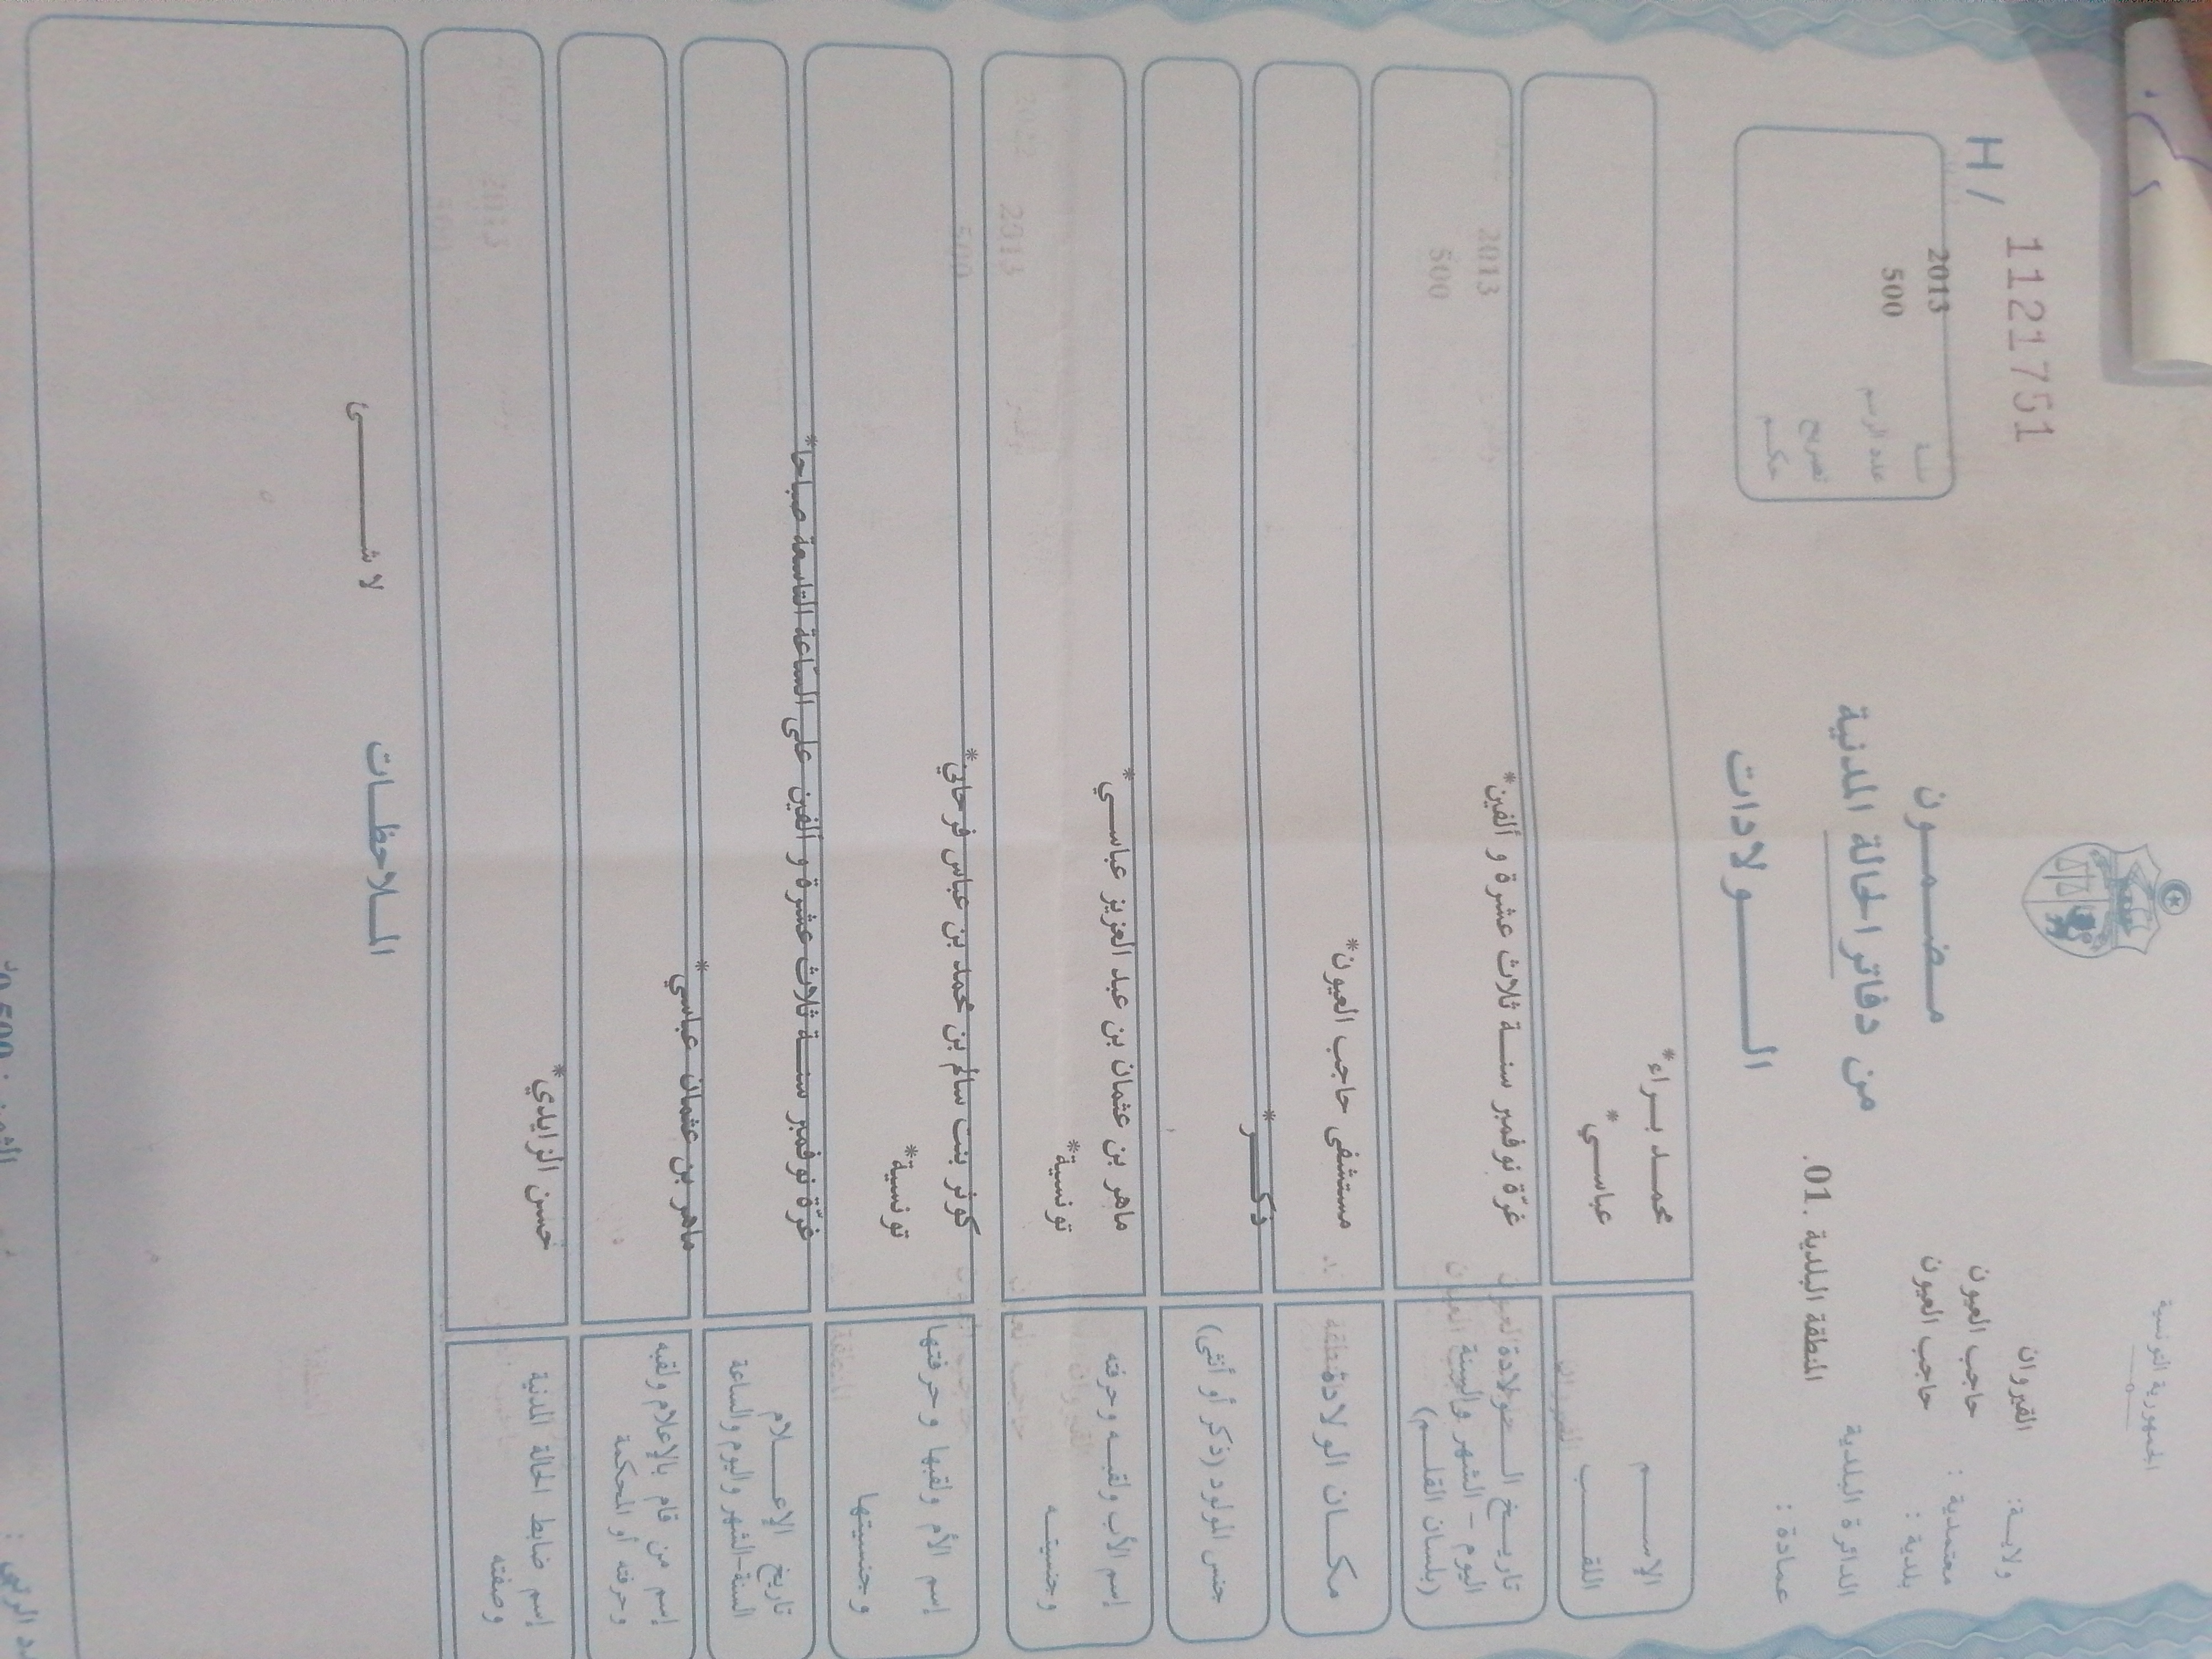 الجمهورية التونسية
ولاية: القيروان
معتمدية : حاجب العيون
بلدية : حاجب العيون
الدائرة البلدية
المنطقة البلدية .01.
عمادة :
مضمون
من دفاتر الحالة المدنية
الولادات
H / 1121751
سنة 2013
عدد الرسم 500
تصريح
حكم
الاسم محمد براء*
اللقب عباسي*
تاريخ الولادة غرّة نوفمبر سنة ثلاث عشرة و ألفين*
اليوم - الشهر والسنة
(بلسان القلم)
مكان الولادة مستشفى حاجب العيون*
جنس المولود (ذكر أو أنثى) ذكر*
إسم الأب ولقبه وحرفته ماهر بن عثمان بن عبد العزيز عباسي*
وجنسيته تونسية*
إسم الأم ولقبها وحرفتها كوثر بنت سالم بن محمد بن عباس فرحاني*
وجنسيتها تونسية*
تاريخ الإعلام غرّة نوفمبر سنة ثلاث عشرة و ألفين على السّاعة التاسعة صباحا*
السنة-الشهر واليوم والساعة
إسم من قام بالإعلام ولقبه ماهر بن عثمان عباسي*
وحرفته أو المحكمة
إسم ضابط الحالة المدنية حسن الزايدي*
وصفته
الملاحظات
لا شئ